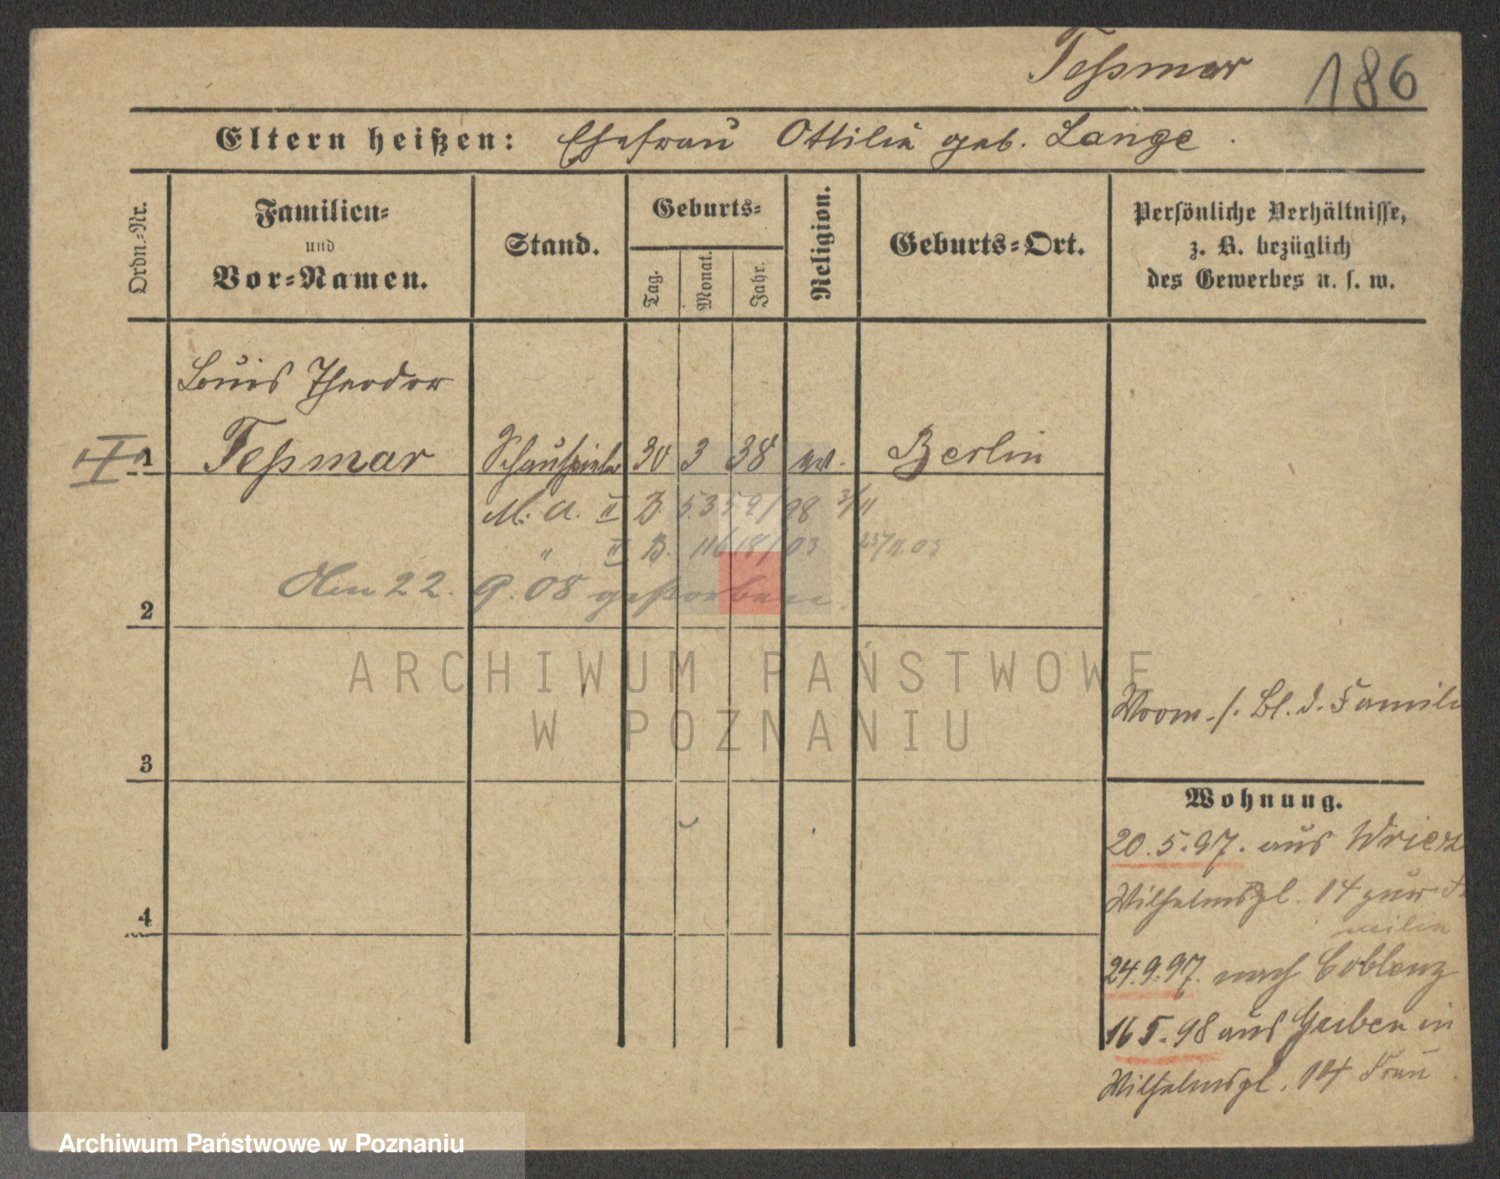 Teßmar 186
Eltern heißen: Ehefrau Ottilie geb. Lange.
Ordn.-Nr.
Familien-
und
Vor-Namen.
Stand.
Geburts-
Tag.
Monat.
Jahr.
Religion.
Geburts-Ort.
Persönliche Verhältnisse,
z. B. bezüglich
des Gewerbes u. s. w.
Louis Theodor
1 Teßmar Schauspieler 30 3 38 ev. Berlin
M. A. II B. 5359/98 3/11
" II B. 11618/03
Am 22. 9. 08 gestorben.
2
ARCHIWUM PAŃSTWOWE
W POZNANIU
Bl. d. Famili
3
Wohnung.
20.5.97. aus Wriez
Wilhelmspl. 14 zur Fa
milie
24.9.97. nach Coblenz
4
16 5.98 aus Guben in
Wilhelmspl. 14 Frau
Archiwum Państwowe w Poznaniu